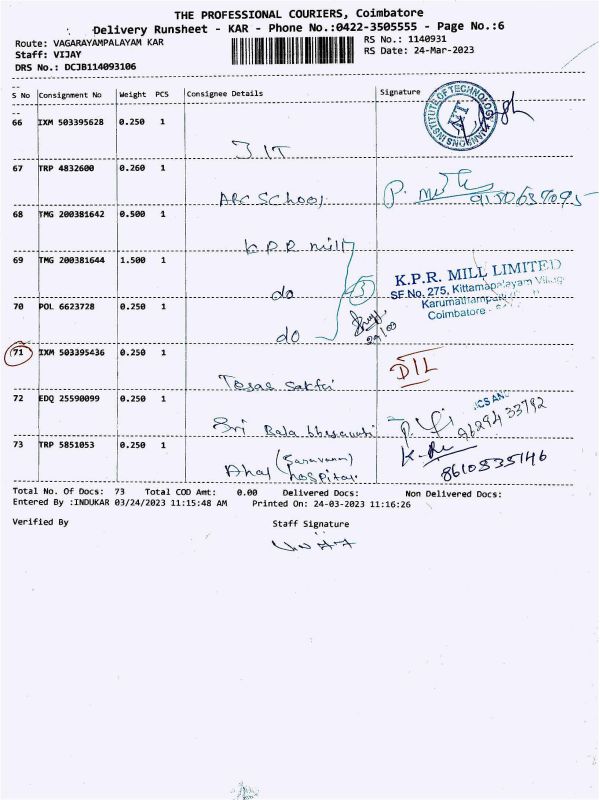 THE PROFESSIONAL COURIERS, Coimbatore
Delivery Runsheet - KAR - Phone No.:0422-3505555 - Page No.:6
Route: VAGARAYAMPALAYAM KAR
RS No.: 1140931
Staff: VIJAY
RS Date: 24-Mar-2023
DRS No.: DCJB114093106
S No Consignment No Weight PCS Consignee Details Signature
INSTITUTE OF TECHNOLOGY
66 IXM 503395628 0.250 1
JIT
67 TRP 4832600 0.260 1
ABC School
P.
68 TMG 200381642 0.500 1
K.P.R mill
69 TMG 200381644 1.500 1
do
3
K.P.R. MILL LIMITED
SF No. 275, Kittampalayam Village
Karumathampatti
Coimbatore -
70 POL 6623728 0.250 1
do
71 IXM 503395436 0.250 1
DIL
72 EDQ 25590099 0.250 1
Sri Bala
9629433792
73 TRP 5851053 0.250 1
(Saravanan)
hospital
8610535146
Total No. Of Docs: 73 Total COD Amt: 0.00 Delivered Docs: Non Delivered Docs:
Entered By :INDUKAR 03/24/2023 11:15:48 AM Printed On: 24-03-2023 11:16:26
Verified By Staff Signature